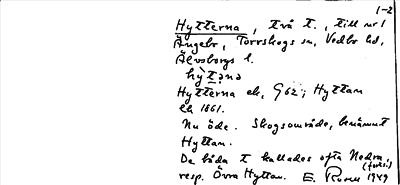 1-2
Hytterna, två t., till nr 1
Ängebo, Torrskogs sn, Vedbo hd,
Älvsborgs l.
hỳtəṇa
Hytterna ek, G62; Hyttan
ek 1861.
Nu öde. Skogsområde, benämnt
Hyttan.
De båda t kallades ofta Nedra
resp. Övra Hyttan. E. Rosell 1949